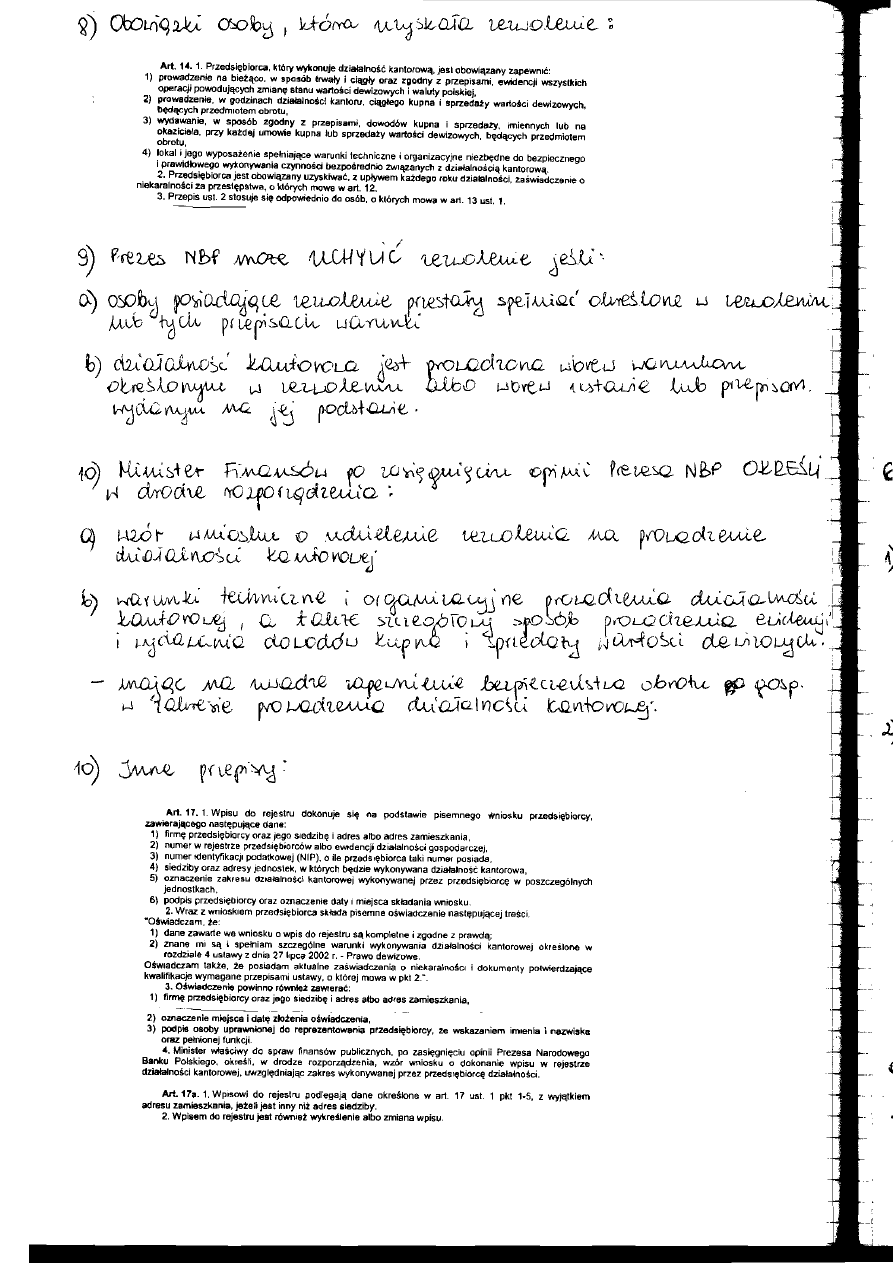 8) Obowiązki osoby, która uzyskała zezwolenie:
Art. 14. 1. Przedsiębiorca, który wykonuje działalność kantorową, jest obowiązany zapewnić:
1) prowadzenie na bieżąco, w sposób trwały i ciągły oraz zgodny z przepisami, ewidencji wszystkich
operacji powodujących zmianę stanu wartości dewizowych i waluty polskiej,
2) prowadzenie, w godzinach działalności kantoru, ciągłego kupna i sprzedaży wartości dewizowych,
będących przedmiotem obrotu,
3) wydawanie, w sposób zgodny z przepisami, dowodów kupna i sprzedaży, imiennych lub na
okaziciela, przy każdej umowie kupna lub sprzedaży wartości dewizowych, będących przedmiotem
obrotu,
4) lokal i jego wyposażenie spełniające warunki techniczne i organizacyjne niezbędne do bezpiecznego
i prawidłowego wykonywania czynności bezpośrednio związanych z działalnością kantorową.
2. Przedsiębiorca jest obowiązany uzyskiwać, z upływem każdego roku działalności, zaświadczenie o
niekaralności za przestępstwa, o których mowa w art. 12.
3. Przepis ust. 2 stosuje się odpowiednio do osób, o których mowa w art. 13 ust. 1.
9) Prezes NBP może UCHYLIĆ zezwolenie jeśli:
a) osoby posiadające zezwolenie przestały spełniać określone w zezwoleniu
lub tych przepisach warunki
b) działalność kantorowa jest prowadzona wbrew warunkom
określonym w zezwoleniu albo wbrew ustawie lub przepisom
wydanym na jej podstawie.
10) Minister Finansów po zasięgnięciu opinii Prezesa NBP OKREŚLI
w drodze rozporządzenia:
a) wzór wniosku o udzielenie zezwolenia na prowadzenie
działalności kantorowej
b) warunki techniczne i organizacyjne prowadzenia działalności
kantorowej, a także szczegółowy sposób prowadzenia ewidencji
i wydawania dowodów kupna i sprzedaży wartości dewizowych.
- mając na uwadze zapewnienie bezpieczeństwa obrotu gosp.
w zakresie prowadzenia działalności kantorowej.
10) Inne przepisy:
Art. 17. 1. Wpisu do rejestru dokonuje się na podstawie pisemnego wniosku przedsiębiorcy,
zawierającego następujące dane:
1) firmę przedsiębiorcy oraz jego siedzibę i adres albo adres zamieszkania,
2) numer w rejestrze przedsiębiorców albo ewidencji działalności gospodarczej,
3) numer identyfikacji podatkowej (NIP), o ile przedsiębiorca taki numer posiada,
4) siedziby oraz adresy jednostek, w których będzie wykonywana działalność kantorowa,
5) oznaczenie zakresu działalności kantorowej wykonywanej przez przedsiębiorcę w poszczególnych
jednostkach,
6) podpis przedsiębiorcy oraz oznaczenie daty i miejsca składania wniosku.
2. Wraz z wnioskiem przedsiębiorca składa pisemne oświadczenie następującej treści.
"Oświadczam, że:
1) dane zawarte we wniosku o wpis do rejestru są kompletne i zgodne z prawdą;
2) znane mi są i spełniam szczególne warunki wykonywania działalności kantorowej określone w
rozdziale 4 ustawy z dnia 27 lipca 2002 r. - Prawo dewizowe.
Oświadczam także, że posiadam aktualne zaświadczenia o niekaralności i dokumenty potwierdzające
kwalifikacje wymagane przepisami ustawy, o której mowa w pkt 2.".
3. Oświadczenie powinno również zawierać:
1) firmę przedsiębiorcy oraz jego siedzibę i adres albo adres zamieszkania,
2) oznaczenie miejsca i datę złożenia oświadczenia,
3) podpis osoby uprawnionej do reprezentowania przedsiębiorcy, ze wskazaniem imienia i nazwiska
oraz pełnionej funkcji.
4. Minister właściwy do spraw finansów publicznych, po zasięgnięciu opinii Prezesa Narodowego
Banku Polskiego, określi, w drodze rozporządzenia, wzór wniosku o dokonanie wpisu w rejestrze
działalności kantorowej, uwzględniając zakres wykonywanej przez przedsiębiorcę działalności.
Art. 17a. 1. Wpisowi do rejestru podlegają dane określone w art. 17 ust. 1 pkt 1-5, z wyjątkiem
adresu zamieszkania, jeżeli jest inny niż adres siedziby.
2. Wpisem do rejestru jest również wykreślenie albo zmiana wpisu.